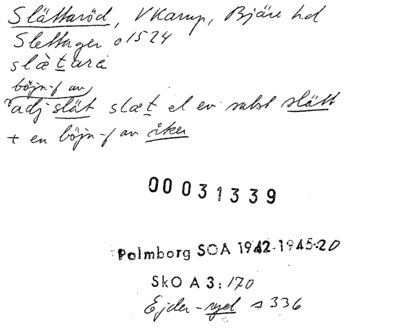 Slättaröd, VKarup, Bjäre hd
Slettager o 1524
slætara
böjn-f av
adj slät slæt el ev subst slätt
+ en böjn-f av åker
00031339
Palmborg SOA 1942-1945:20
SkO A 3:170
Ejder-ryd s 336